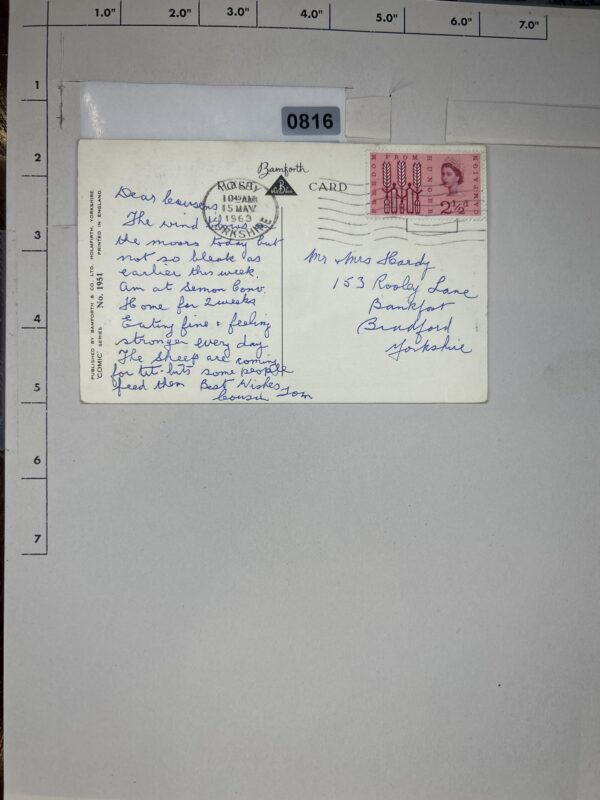 1.0" 2.0" 3.0" 4.0" 5.0" 6.0" 7.0"
1
2
3
4
5
6
7
0816
Bamforth
CARD
10 AM
15 MAY
1963
YORKSHIRE
FREEDOM FROM HUNGER CAMPAIGN
2½d
PUBLISHED BY BAMFORTH & CO. LTD. HOLMFIRTH, YORKSHIRE
"COMIC" SERIES No. 1951 PRINTED IN ENGLAND
Dear Cousens
The wind blows
the moors today but
not so bleak as
earlier this week.
Am at Semon Conv.
Home for 2 weeks
Eating fine & feeling
stronger every day
The sheep are coming
for tit-bits some people
feed them Best Wishes
Cousin Tom
Mr & Mrs Hardy
153 Rooley Lane
Bankfoot
Bradford
Yorkshire